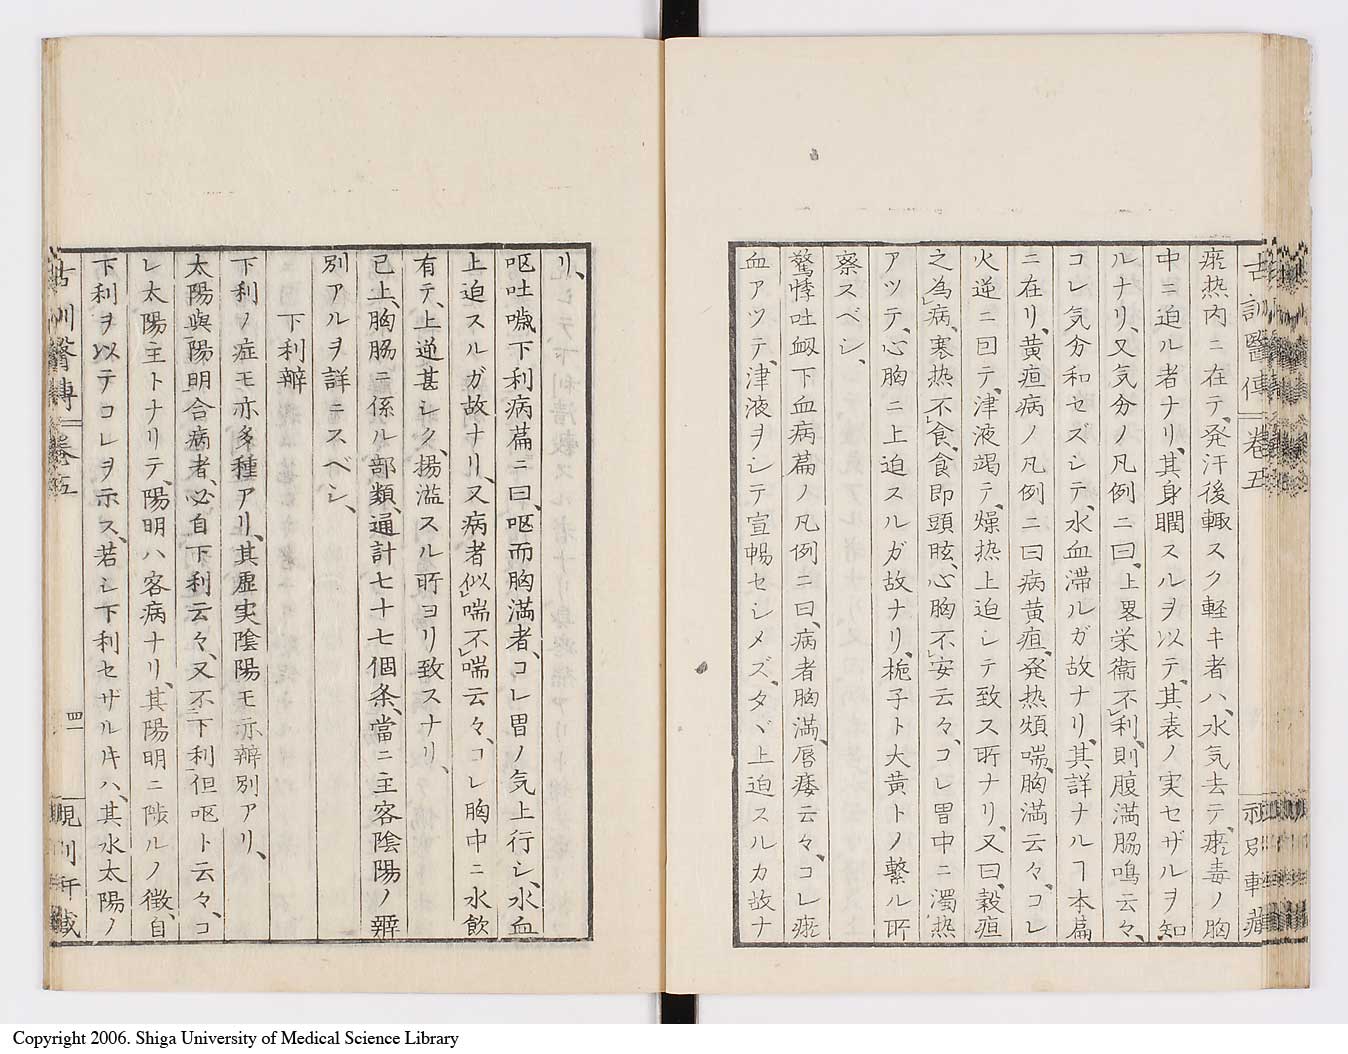 古訓醫傳 卷五
瘀熱内ニ在テ、発汗後輙スク軽キ者ハ、水気去テ、瘀毒ノ胸
中ニ迫ル者ナリ、其身瞤スルヲ以テ、其表ノ実セザルヲ知
ルナリ、又気分ノ凡例ニ曰、上畧栄衞不利、則腹満脇鳴云々、
コレ気分和セズシテ、水血滞ルガ故ナリ、其詳ナルヿ本篇
ニ在リ、黄疸病ノ凡例ニ曰病黄疸、発熱煩喘、胸満云々、コレ
火逆ニ因テ、津液竭テ、燥热上迫シテ致ス所ナリ、又曰、穀疸
之為病、寒热不食、食即頭眩、心胸不安云々、コレ胃中ニ濁熱
アツテ、心胸ニ上迫スルガ故ナリ、梔子ト大黄トノ繋ル所
察スベシ、
驚悸吐衂下血病篇ノ凡例ニ曰、病者胸満、唇痿云々、コレ瘀
血アツテ、津液ヲシテ宣暢セシメズ、タヾ上迫スルカ故ナ
リ、
呕吐噦下利病篇ニ曰、呕而胸満者、コレ胃ノ気上行シ、水血
上迫スルガ故ナリ、又病者似喘不喘云々、コレ胸中ニ水飲
有テ、上逆甚シク、揚溢スル所ヨリ致スナリ、
已上、胸脇ニ係ル部類、通計七十七個条、當ニ主客陰陽ノ辨
別アルヲ詳ニスベシ、
下利辨
下利ノ症モ亦多種アリ、其虚実陰陽モ亦辨別アリ、
太陽與陽明合病者、必自下利云々、又不下利但呕ト云々、コ
レ太陽主トナリテ、陽明ハ客病ナリ、其陽明ニ陟ルノ徴、自
下利ヲ以テコレヲ示ス、若シ下利セザルキハ、其水太陽ノ
古訓醫傳 卷五
四一
Copyright 2006. Shiga University of Medical Science Library